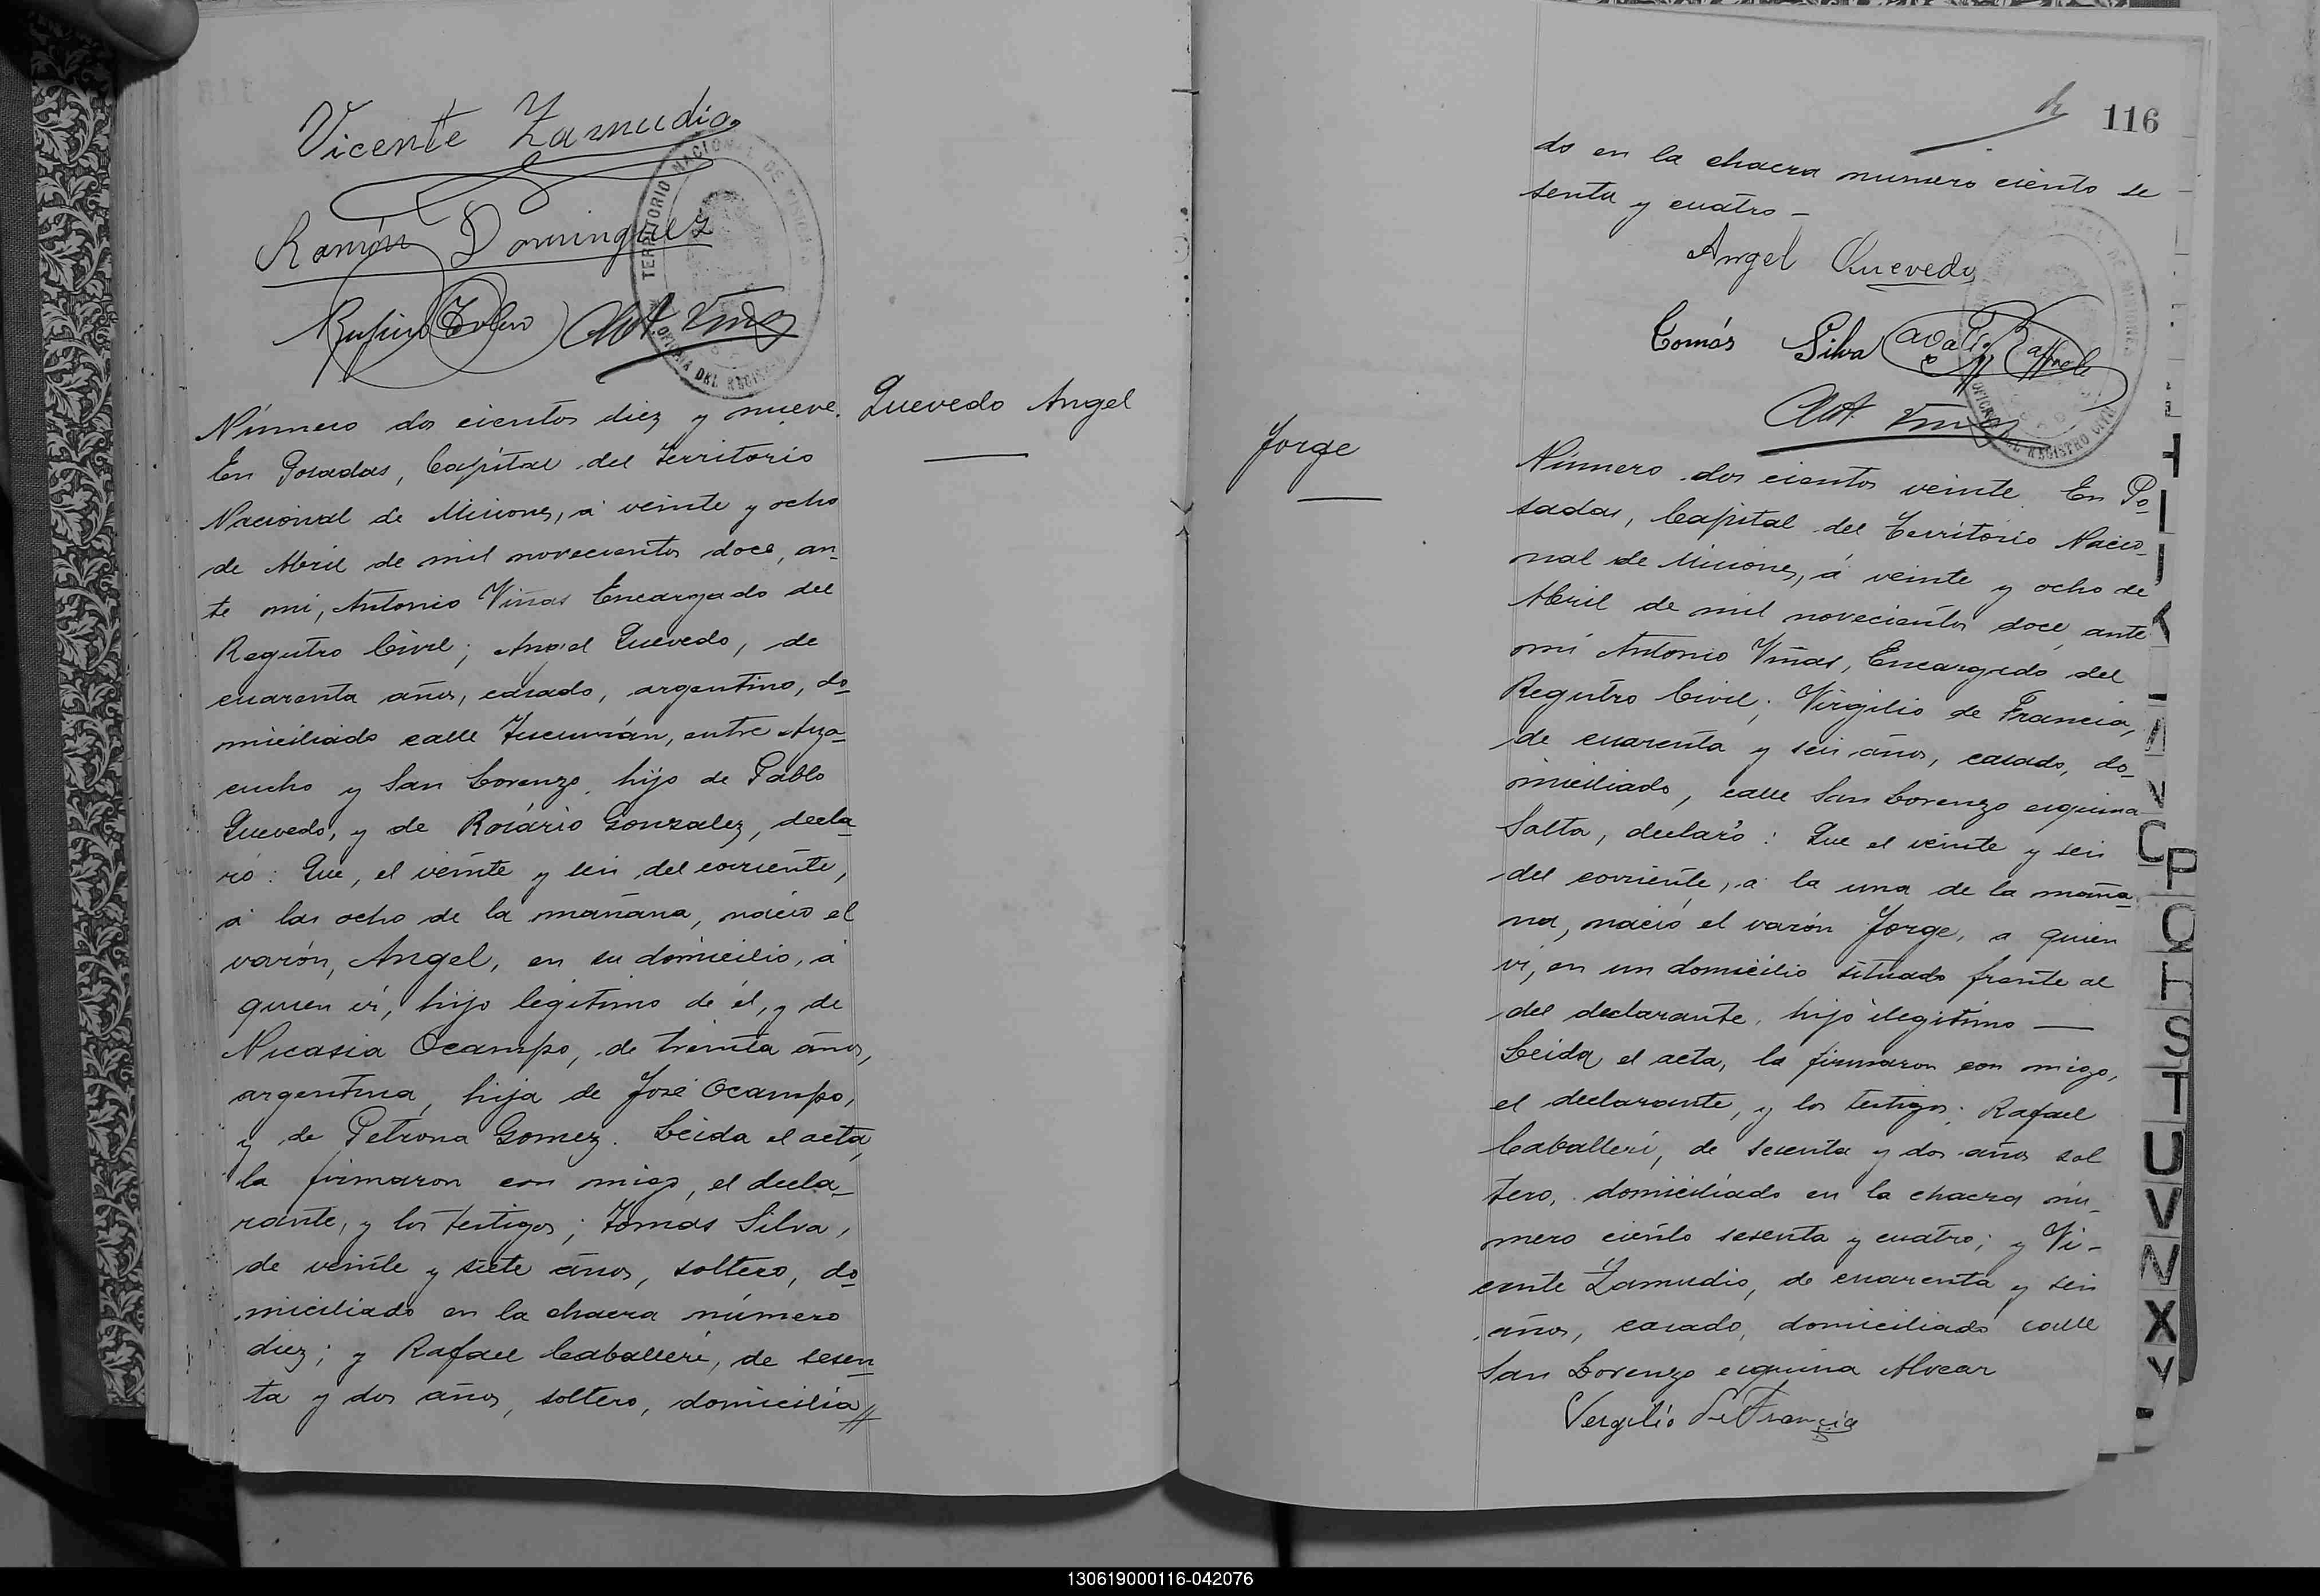 Vicente Zamudio
Ramón Dominguez
TERRITORIO NACIONAL DE MISIONES
OFICINA DEL REGISTRO
Número dos cientos diez y nueve.
En Posadas, Capital del Territorio
Nacional de Misiones, á veinte y ocho
de Abril de mil novecientos doce, an-
te mi, Antonio Viñas Encargado del
Registro Civil; Angel Quevedo, de
cuarenta años, casado, argentino, do-
miciliado calle Tucumán, entre Aya-
cucho y San Lorenzo, hijo de Pablo
Quevedo, y de Rosário Gonzalez, decla-
ró: Que, el veinte y seis del corriente,
á las ocho de la mañana, nació el
varón, Angel, en su domicilio, á
quien ví, hijo legítimo de él, y de
Nicasia Ocampo, de treinta años,
argentina, hija de José Ocampo,
y de Petrona Gomez. Leida el acta,
la firmaron con migo, el decla-
rante, y los testigos; Tomas Silva,
de veinte y siete años, soltero, do-
miciliado en la chacra número
diez; y Rafael Caballeri, de sesen-
ta y dos años, soltero, domicilia//
Quevedo Angel
116
do en la chacra numero ciento se
senta y cuatro -
Angel Quevedo
Tomás Silva
OFICINA DEL REGISTRO CIVIL
Jorge
Número dos cientos veinte. En Po-
sadas, Capital del Territorio Nacio-
nal de Misiones, á veinte y ocho de
Abril de mil novecientos doce, ante
mi Antonio Viñas, Encargado del
Registro Civil; Virgilio de Francia,
de cuarenta y seis años, casado, do-
miciliado, calle San Lorenzo esquina
Salta, declaró: Que el veinte y seis
del corriente, á la una de la maña-
na, nació el varón Jorge, a quien
ví, en un domicilio situado frente al
del declarante, hijo ilegítimo —
Leida el acta, la firmaron con migo,
el declarante, y los testigos: Rafael
Caballeri, de sesenta y dos años sol
tero, domiciliado en la chacra nú-
mero ciento sesenta y cuatro; y Vi-
cente Zamudio, de cuarenta y seis
años, casado, domiciliado calle
San Lorenzo esquina Alvear
Vergilio De Francia
C
P
Q
H
S
T
U
V
N
X
Y
130619000116-042076